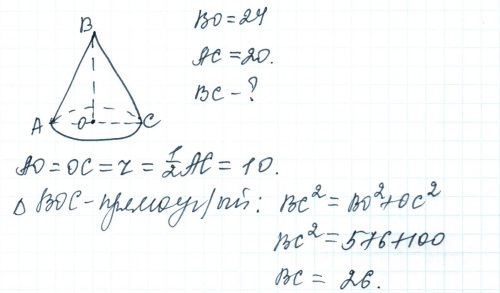 B
BO = 24
AC = 20.
BC - ?
A O C
AO = OC = r = 1/2 AC = 10.
Δ BOC - прямоуг/ый: BC² = BO² + OC²
BC² = 576 + 100
BC = 26.